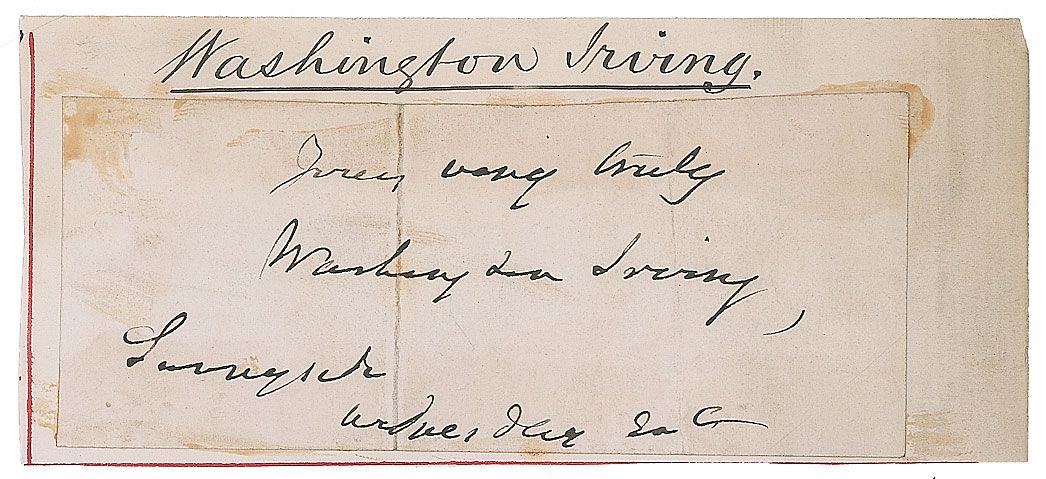 Washington Irving.
Yours very truly
Washington Irving
Sunnyside
Wednesday